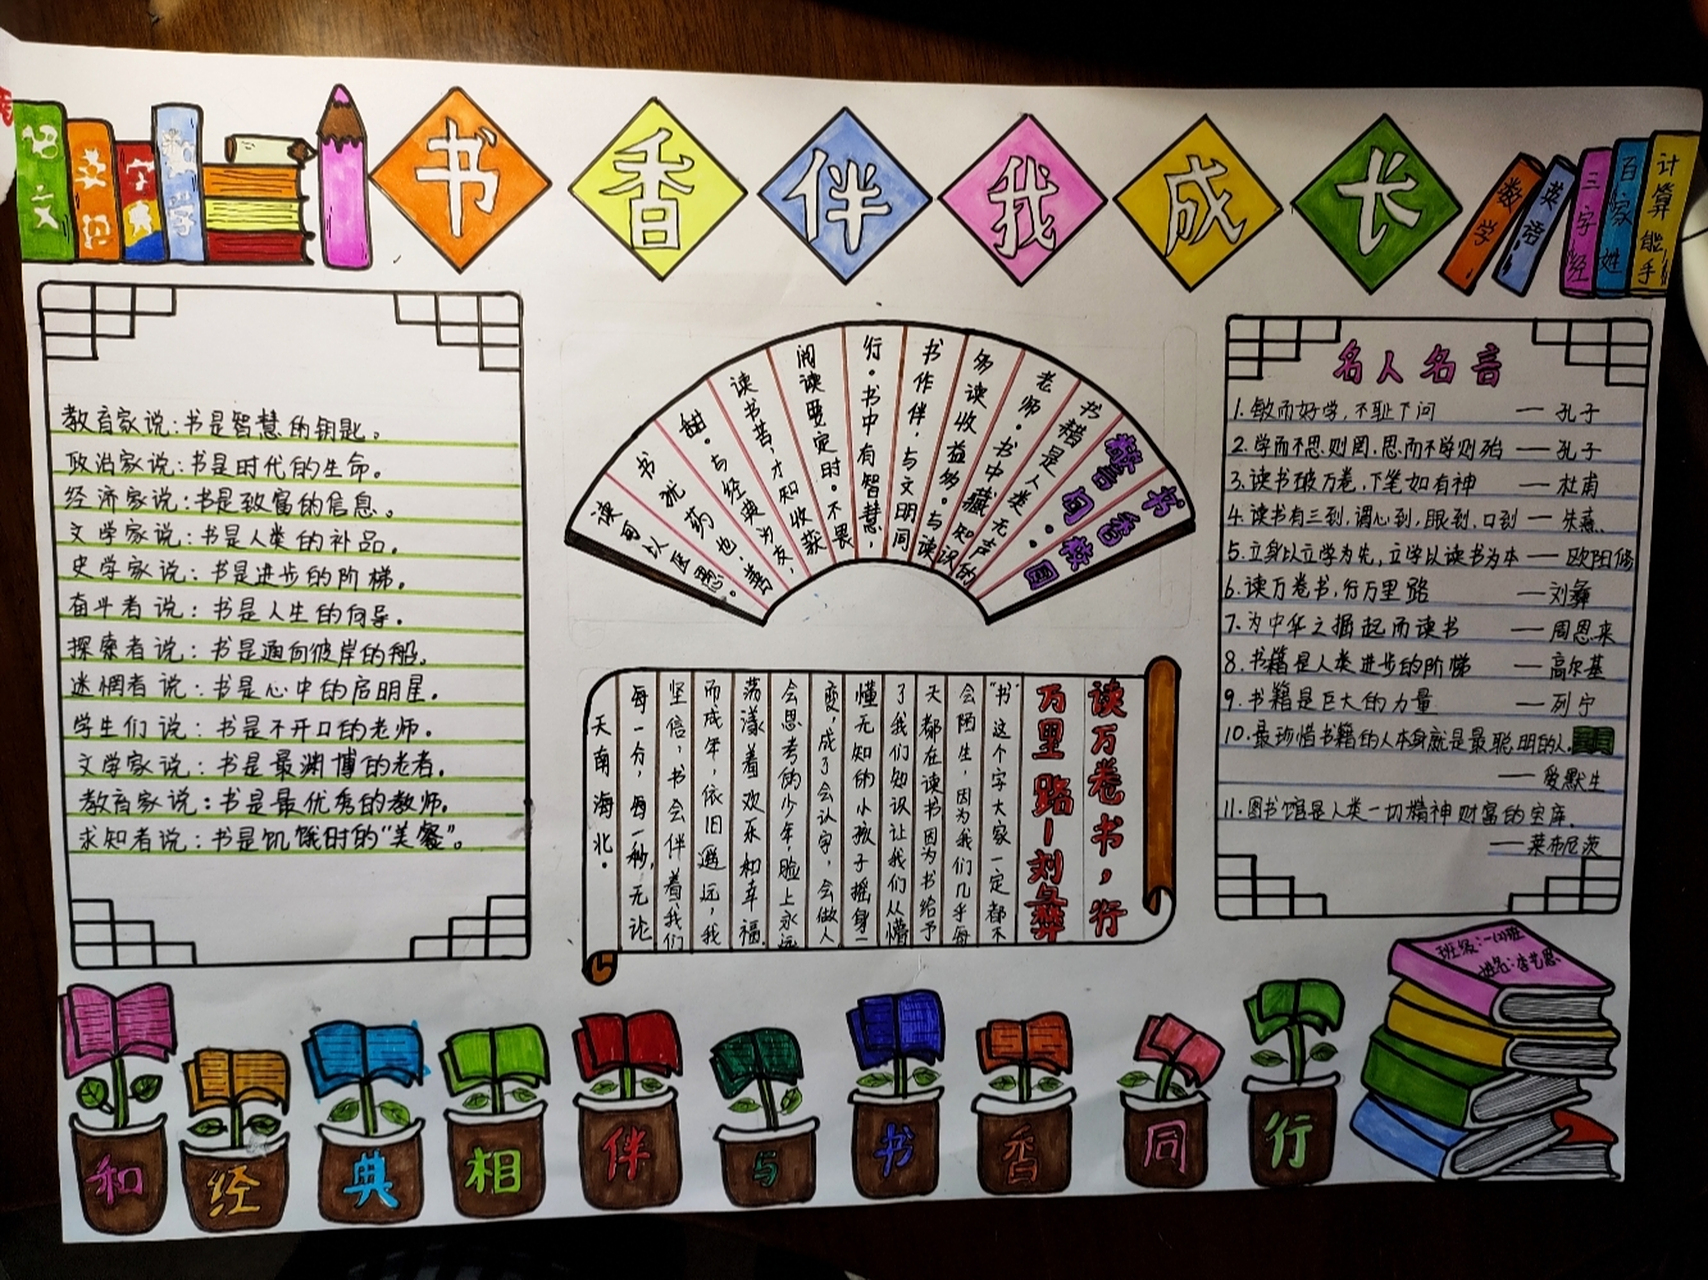 语文
英语
数学
书香伴我成长
数学
英语
三字经
百家姓
计算能手
教育家说:书是智慧的钥匙。
政治家说:书是时代的生命。
经济家说:书是致富的信息。
文学家说:书是人类的补品。
史学家说:书是进步的阶梯。
奋斗者说:书是人生的向导。
探索者说:书是通向彼岸的船。
迷惘者说:书是心中的启明星。
学生们说:书是不开口的老师。
文学家说:书是最渊博的老者。
教育家说:书是最优秀的教师。
求知者说:书是饥饿时的“美餐”。
书香校园
警言句:
书籍是人类无声的
老师。书中藏知识
多读收益多。与读
书作伴,与文明同
行。书中有智慧,
阅读要定时。不畏
读书苦,才知收获
甜。与经典为友,
书犹药也,善
读可以医愚。
读万卷书,行
万里路—刘彝
“书”这个字大家一定都不
会陌生,因为我们几乎每
天都在读书因为书给予
了我们知识让我们从懵
懂无知的小孩子摇身一
变,成了会认字,会做人
会思考的少年,脸上永远
荡漾着欢乐和幸福。
而成年,依旧遥远,我
坚信,书会伴着我们
每一分,每一秒,无论
天南海北。
名人名音
1.敏而好学,不耻下问 — 孔子
2.学而不思则罔,思而不学则殆 — 孔子
3.读书破万卷,下笔如有神 — 杜甫
4.读书有三到,谓心到,眼到,口到 — 朱熹
5.立身以立学为先,立学以读书为本 — 欧阳修
6.读万卷书,行万里路 — 刘彝
7.为中华之掘起而读书 — 周恩来
8.书籍是人类进步的阶梯 — 高尔基
9.书籍是巨大的力量 — 列宁
10.最珍惜书籍的人本身就是最聪明的人
— 爱默生
11.图书馆是人类一切精神财富的宝库。
— 莱布尼茨
班级:一(2)班
姓名:李艺恩
和经典相伴与书香同行